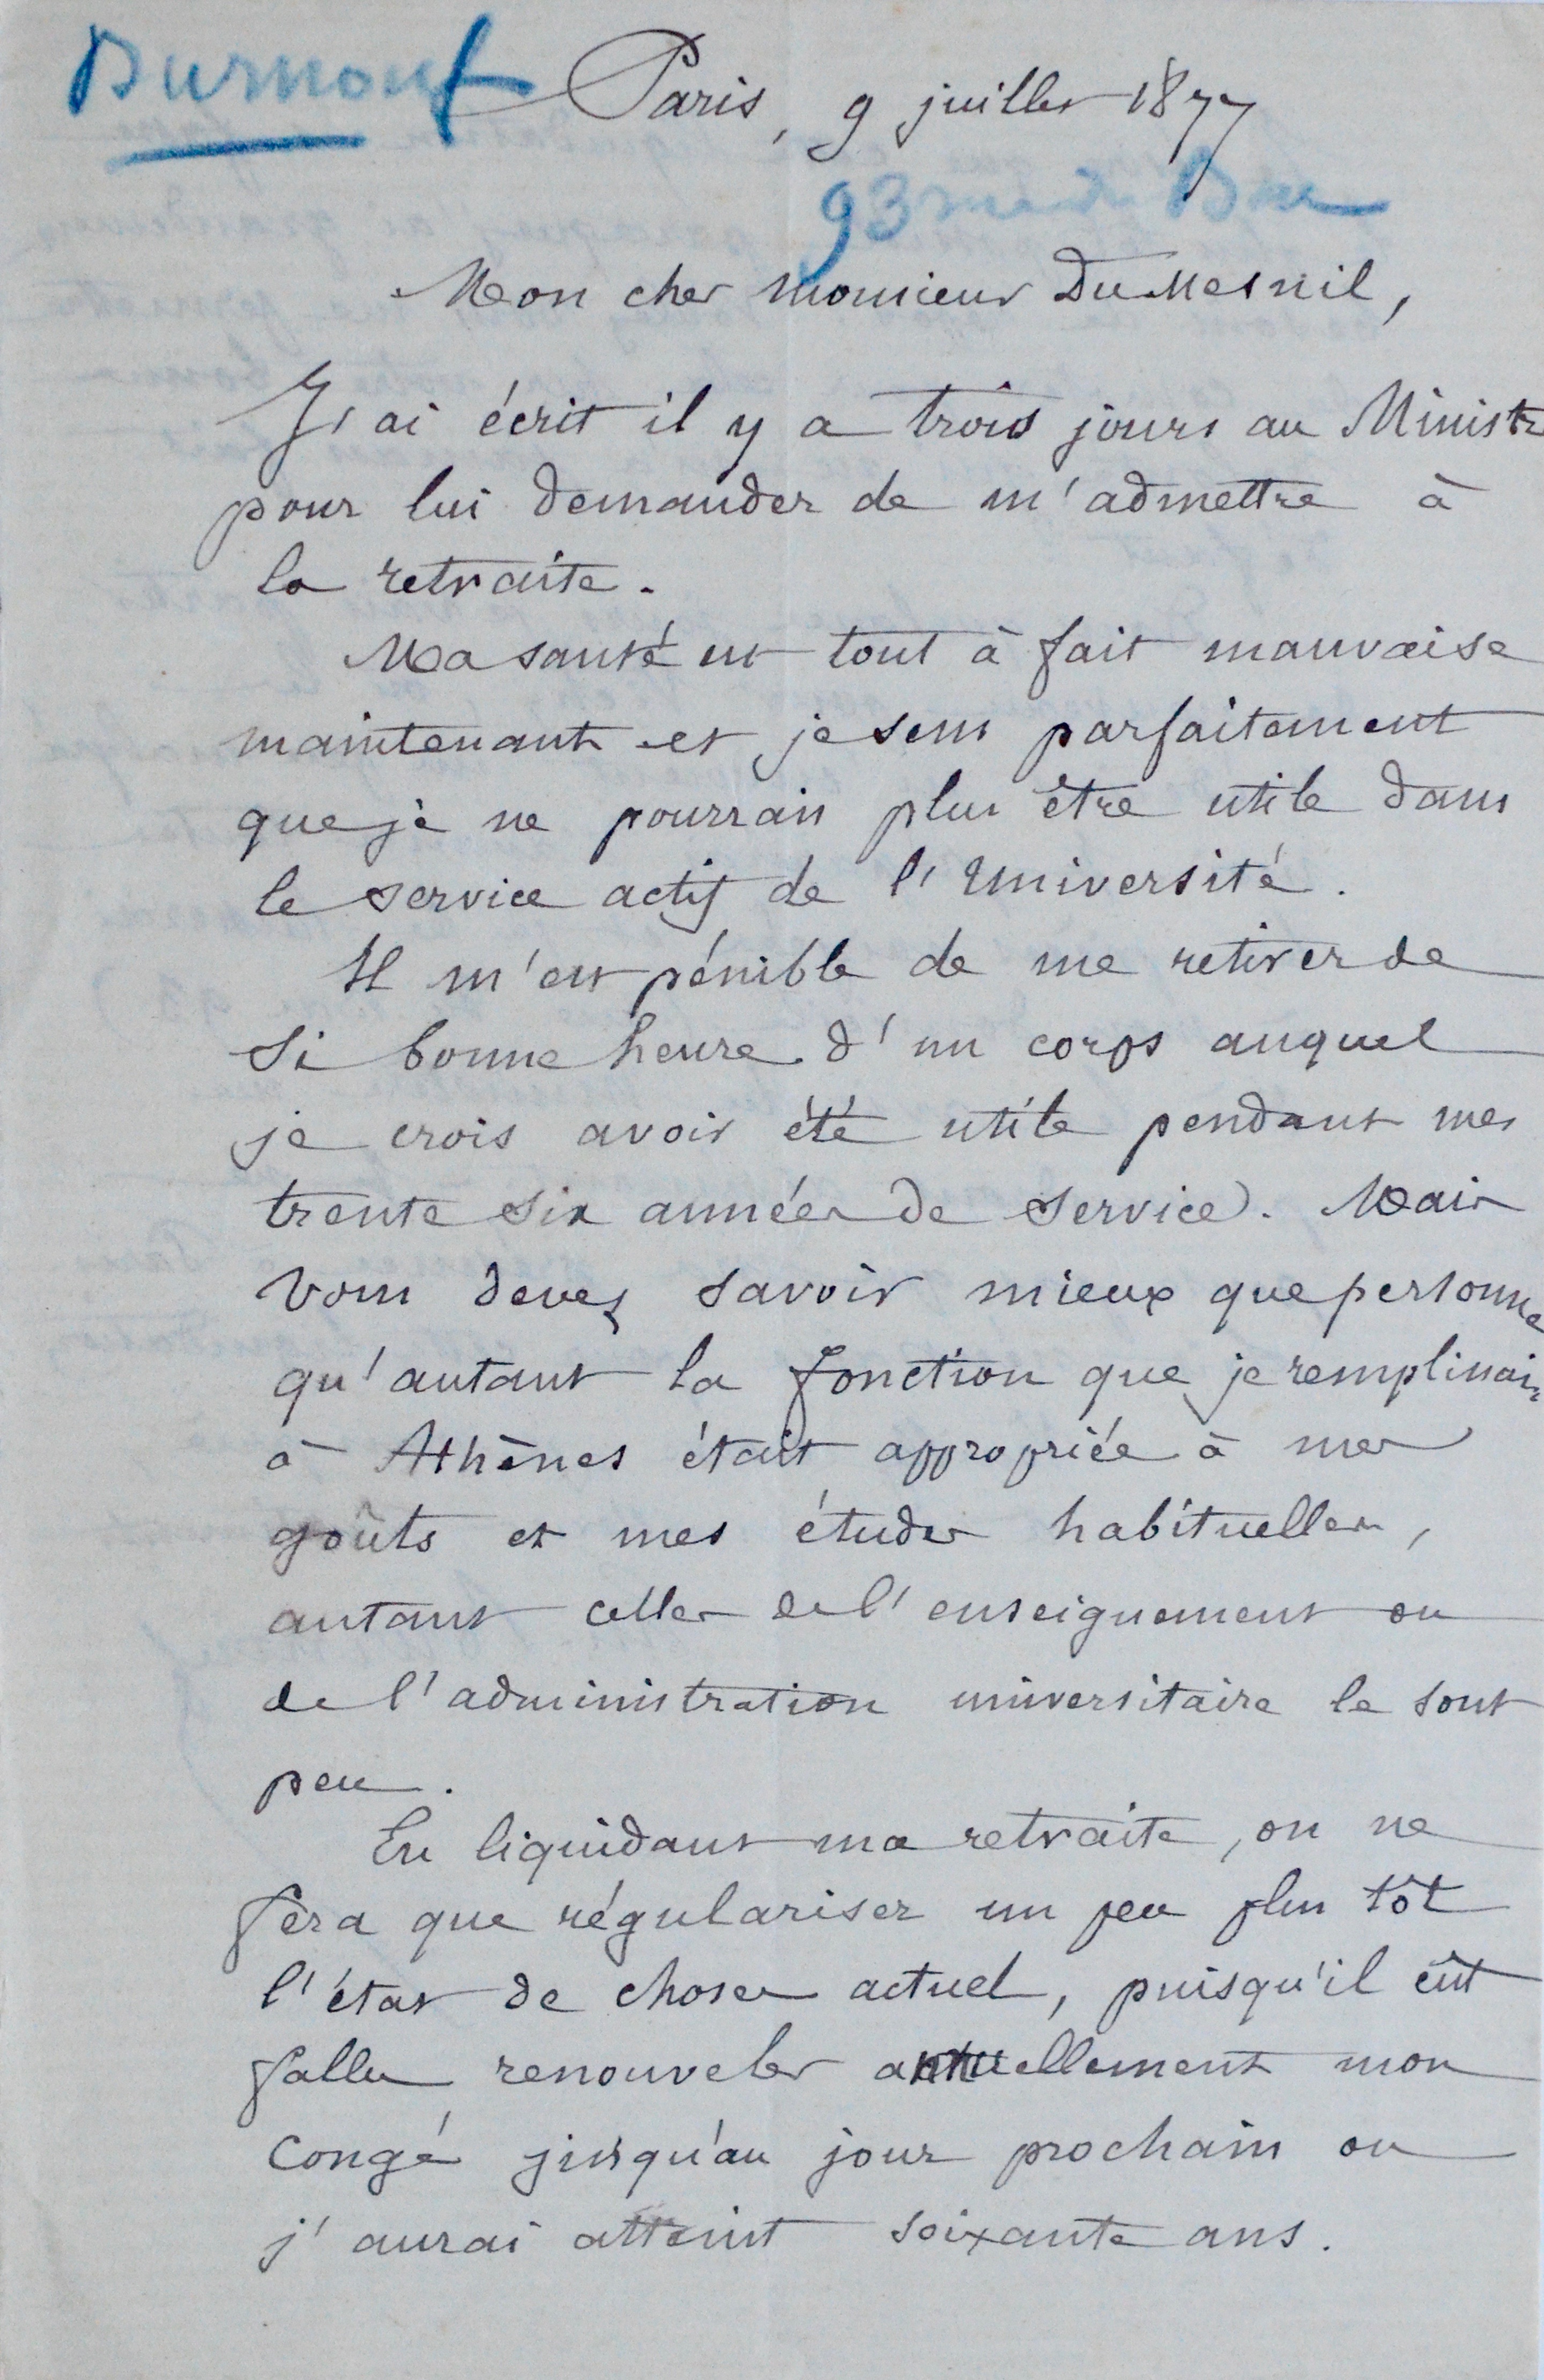 Burnouf
Paris, 9 juillet 1877
93 rue du Bac
Mon cher monsieur Du Mesnil,
J'ai écrit il y a trois jours au Ministre
pour lui demander de m'admettre à
la retraite.
Ma santé est tout à fait mauvaise
maintenant et je sens parfaitement
que je ne pourrais plus être utile dans
le service actif de l'Université.
Il m'est pénible de me retirer de
si bonne heure d'un corps auquel
je crois avoir été utile pendant mes
trente six années de service. Mais
vous devez savoir mieux que personne
qu'autant la fonction que je remplissais
à Athènes était appropriée à mes
goûts et mes études habituelles,
autant celles de l'enseignement ou
de l'administration universitaire le sont
peu.
En liquidant ma retraite, on ne
fera que régulariser un peu plus tôt
l'état de choses actuel, puisqu'il eût
fallu renouveler annuellement mon
congé jusqu'au jour prochain où
j'aurai atteint soixante ans.